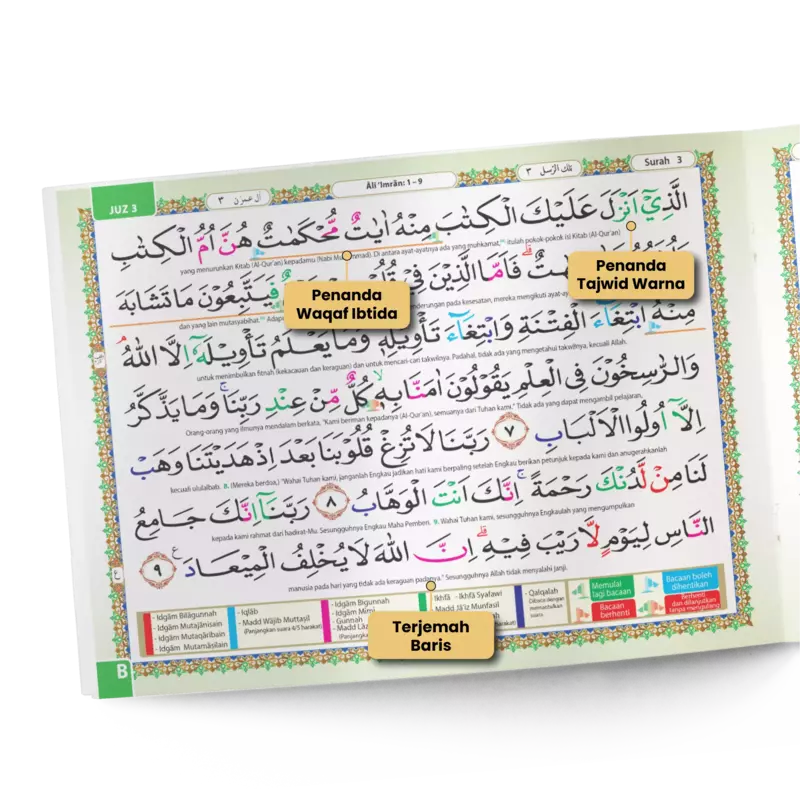 JUZ 3
اٰل عمرٰن ٣
Āli 'Imrān: 1 – 9
تلك الرّسل ٣
Surah 3
الَّذِيْٓ اَنْزَلَ عَلَيْكَ الْكِتٰبَ مِنْهُ اٰيٰتٌ مُّحْكَمٰتٌ هُنَّ اُمُّ الْكِتٰبِ
yang menurunkan Kitab (Al-Qur'an) kepadamu (Nabi Muhammad). Di antara ayat-ayatnya ada yang muhkamat, itulah pokok-pokok isi Kitab (Al-Qur'an)
فَاَمَّا الَّذِيْنَ فِيْ فَيَتَّبِعُوْنَ مَا تَشَابَهَ
dan yang lain mutasyabihat. kecenderungan pada kesesatan, mereka mengikuti
Penanda
Waqaf Ibtida
Penanda
Tajwid Warna
مِنْهُ ابْتِغَاۤءَ الْفِتْنَةِ وَابْتِغَاۤءَ تَأْوِيْلِهٖ وَمَا يَعْلَمُ تَأْوِيْلَهٗٓ اِلَّا اللّٰهُ
untuk menimbulkan fitnah (kekacauan dan keraguan) dan untuk mencari-cari takwilnya. Padahal, tidak ada yang mengetahui takwilnya, kecuali Allah.
وَالرّٰسِخُوْنَ فِى الْعِلْمِ يَقُوْلُوْنَ اٰمَنَّا بِهٖ كُلٌّ مِّنْ عِنْدِ رَبِّنَا وَمَا يَذَّكَّرُ
Orang-orang yang ilmunya mendalam berkata, "Kami beriman kepadanya (Al-Qur'an), semuanya dari Tuhan kami." Tidak ada yang dapat mengambil pelajaran,
اِلَّآ اُولُوا الْاَلْبَابِ ٧ رَبَّنَا لَا تُزِغْ قُلُوْبَنَا بَعْدَ اِذْ هَدَيْتَنَا وَهَبْ
kecuali ululalbab. 8. (Mereka berdoa,) "Wahai Tuhan kami, janganlah Engkau jadikan hati kami berpaling setelah Engkau berikan petunjuk kepada kami dan anugerahkanlah
لَنَا مِنْ لَّدُنْكَ رَحْمَةً اِنَّكَ اَنْتَ الْوَهَّابُ ٨ رَبَّنَآ اِنَّكَ جَامِعُ
kepada kami rahmat dari hadirat-Mu. Sesungguhnya Engkau Maha Pemberi. 9. Wahai Tuhan kami, sesungguhnya Engkaulah yang mengumpulkan
النَّاسِ لِيَوْمٍ لَّا رَيْبَ فِيْهِ اِنَّ اللّٰهَ لَا يُخْلِفُ الْمِيْعَادَ ٩
manusia pada hari yang tidak ada keraguan padanya." Sesungguhnya Allah tidak menyalahi janji.
- Idgām Bilāgunnah
- Idgām Mutajānisain
- Idgām Mutaqāribain
- Idgām Mutamāṡilain
- Iqlāb
- Madd Wājib Muttaṣil
(Panjangkan suara 4/5 harakat)
- Idgām Bigunnah
- Idgām Mīmī
- Gunnah
- Ikhfā - Ikhfā Syafawi
Madd Jā'iz Munfaṣil
- Qalqalah
Dibaca dengan memantulkan suara
Memulai lagi bacaan
Bacaan boleh dihentikan
Bacaan berhenti
Berhenti dan dilanjutkan tanpa mengulang
Terjemah
Baris
B